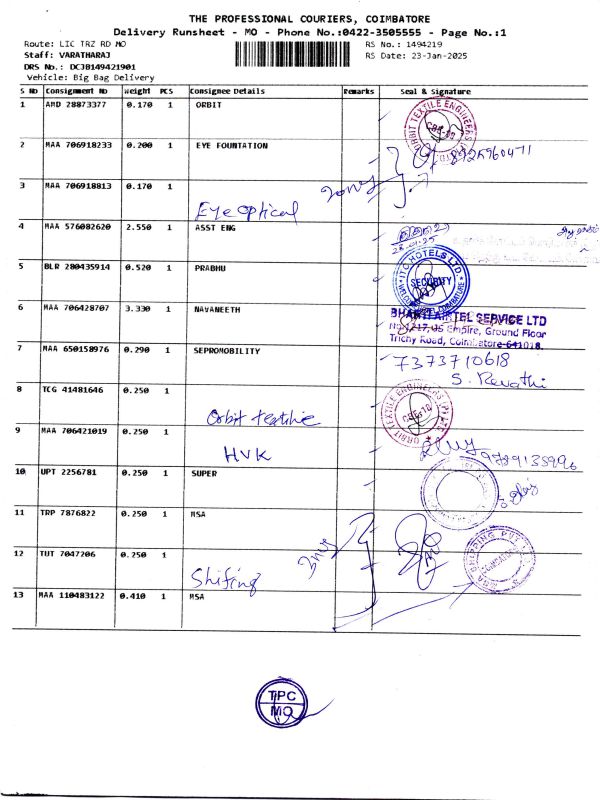 THE PROFESSIONAL COURIERS, COIMBATORE
Delivery Runsheet - MO - Phone No.:0422-3505555 - Page No.:1
Route: LIC TRZ RD MO
RS No.: 1494219
Staff: VARATHARAJ
RS Date: 23-Jan-2025
DRS No.: DCJB149421901
Vehicle: Big Bag Delivery
S No Consignment No Weight PCS Consignee Details Remarks Seal & Signature
1 AMD 28873377 0.170 1 ORBIT
ORBIT TEXTILE ENGINEERS
2 MAA 706918233 0.200 1 EYE FOUNTATION
8925960471
3 MAA 706918813 0.170 1
Eye optical
4 MAA 576082620 2.550 1 ASST ENG
5 BLR 280435914 0.520 1 PRABHU
ITC HOTELS LTD.
SECURITY
COIMBATORE
6 MAA 706428707 3.330 1 NAVANEETH
BHARTI AIRTEL SERVICE LTD
No.1217, US Empire, Ground Floor
Trichy Road, Coimbatore-641018.
7 MAA 650158976 0.290 1 SEPROMOBILITY
7373710618
S. Revathi
8 TCG 41481646 0.250 1
Orbit textile
ORBIT TEXTILE ENGINEERS
9 MAA 706421019 0.250 1
HVK
9789135996
10 UPT 2256781 0.250 1 SUPER
11 TRP 7876822 0.250 1 MSA
12 TUT 7047206 0.250 1
Shifing
13 MAA 110483122 0.410 1 MSA
TPC
MO